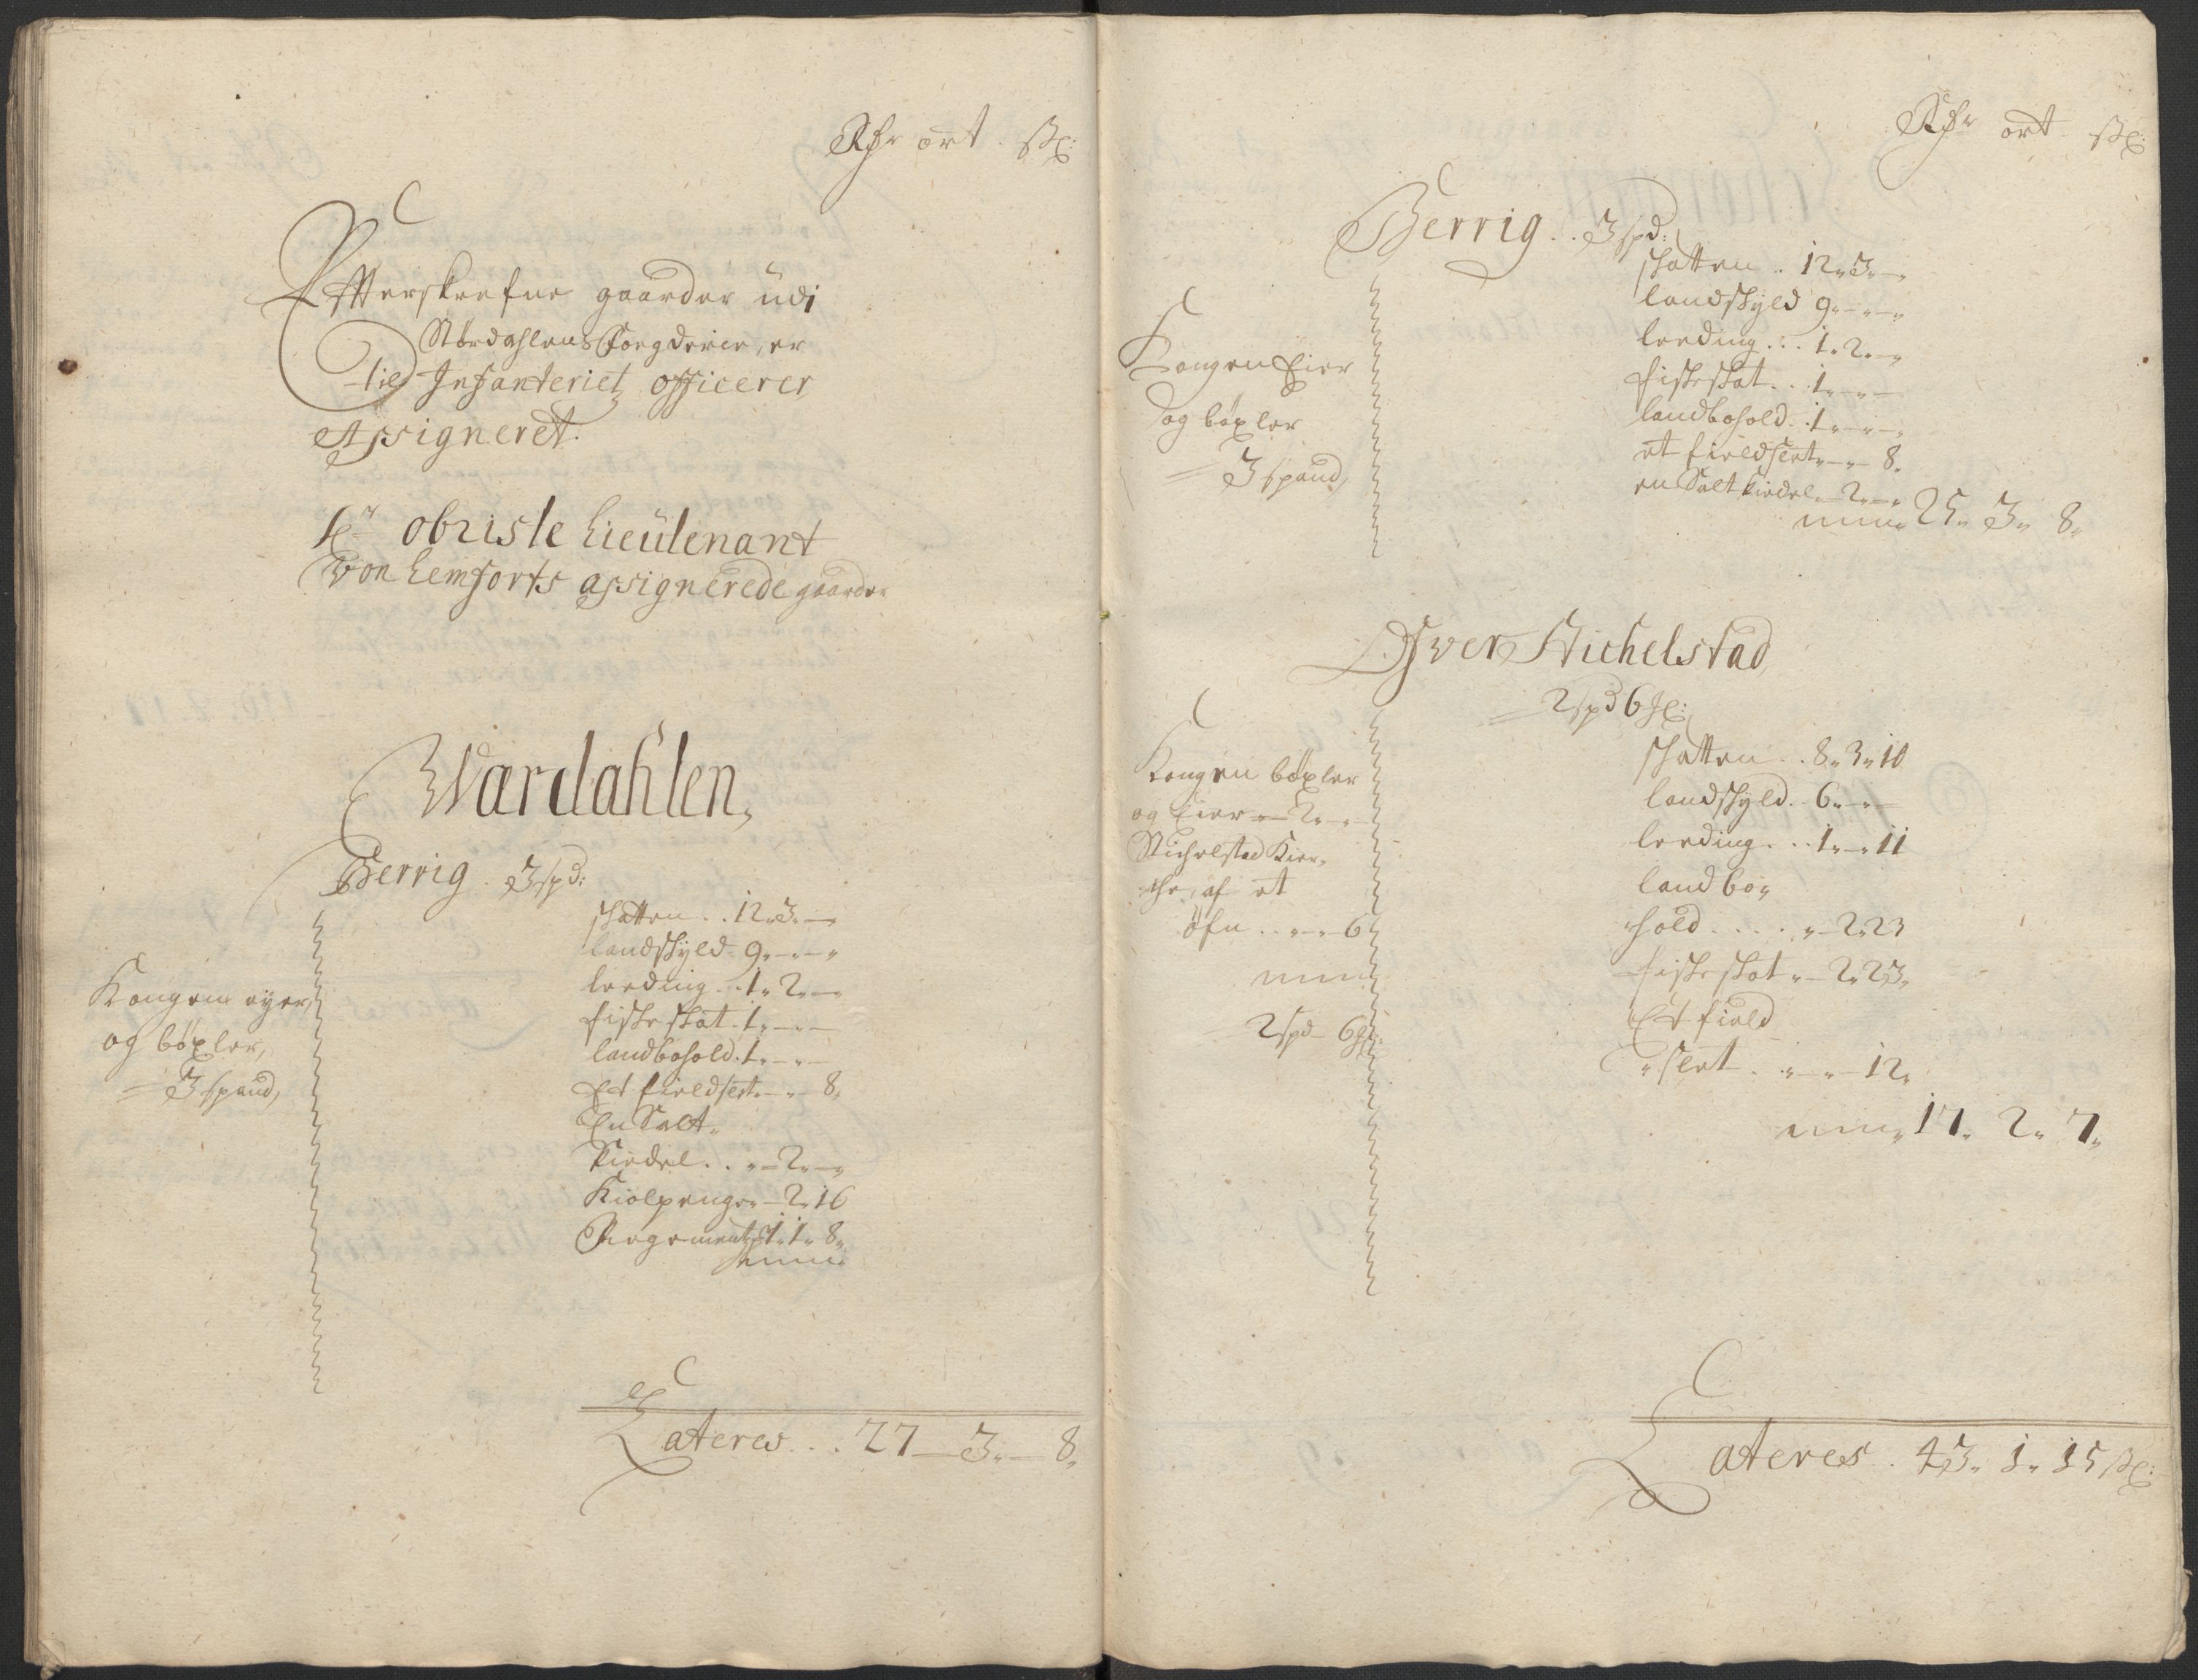 Rdr ort . ß:
Efterskrefne gaarder udi
Stördahlens Foegderie, er
til Infanteriet officerer
Assigneret.
Hr obriste Lieutenant
von Lemforts assignerede gaarder
Wardahlen,
Berrig . 3 spd:
Kongen eyer,
og böxler,
3 spand,
schatten . . 12 „ 3 „ — „
landskyld 9 „ — „ — „
leeding . . 1 „ 2 „ — „
fiskeskat . 1 „ — „ —
landbohold . 1 „ — „ —
Et fieldslet „ — „ — 8 „
En Salt „
Kiedel . . „ — 2 „ — „
Kiolpenge „ — 2 „ 16
Regements 1 „ 1 „ 8 „
Lateres . . . 27 — 3 „ — 8 „
Rdr ort . ß:
Berrig . . 3 spd:
Kongen Eier
og böxler
3 spand,
schatten . . 12 „ 3 „ — „
landskyld 9 „ — „ — „
leeding . . . 1 „ 2 „ — „
fiskeskat . . . 1 „ — „ —
landbohold . . 1 „ — „ — „
et fieldslet „ — „ — 8 „
en Salt kiedel „ — 2 „ — „
25 „ 3 „ 8 „
Öfver Stichelstad
2 spd 6 ℔:
Kongen böxler
og Eier — 2 „ —
Stichelstad Kier-
che, af et
öfn . . „ — „ — 6
2 spd — 6
schatten . . 8 „ 3 „ 10
landskyld . 6 „ — „ —
leeding . . . 1 „ — „ 11
landbo „
hold . . . . „ — 2 „ 23
fiskeskat „ — 2 „ 23 „
Et field
„ slet . „ — „ — 12 „
17 „ 2 „ 7 „
Lateres . 43 „ 1 „ 15 ß: